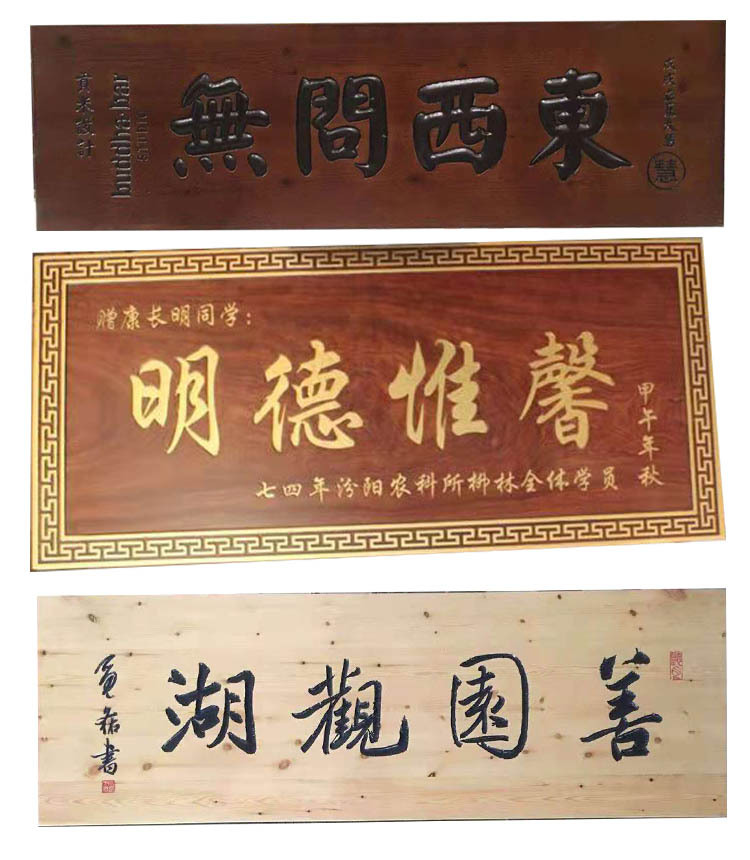 貢米設計
buddha-bar
無問西東
慧
赠康长明同学：
明德惟馨
甲午年秋
七四年汾阳农科所柳林全体学员
善園觀湖
書